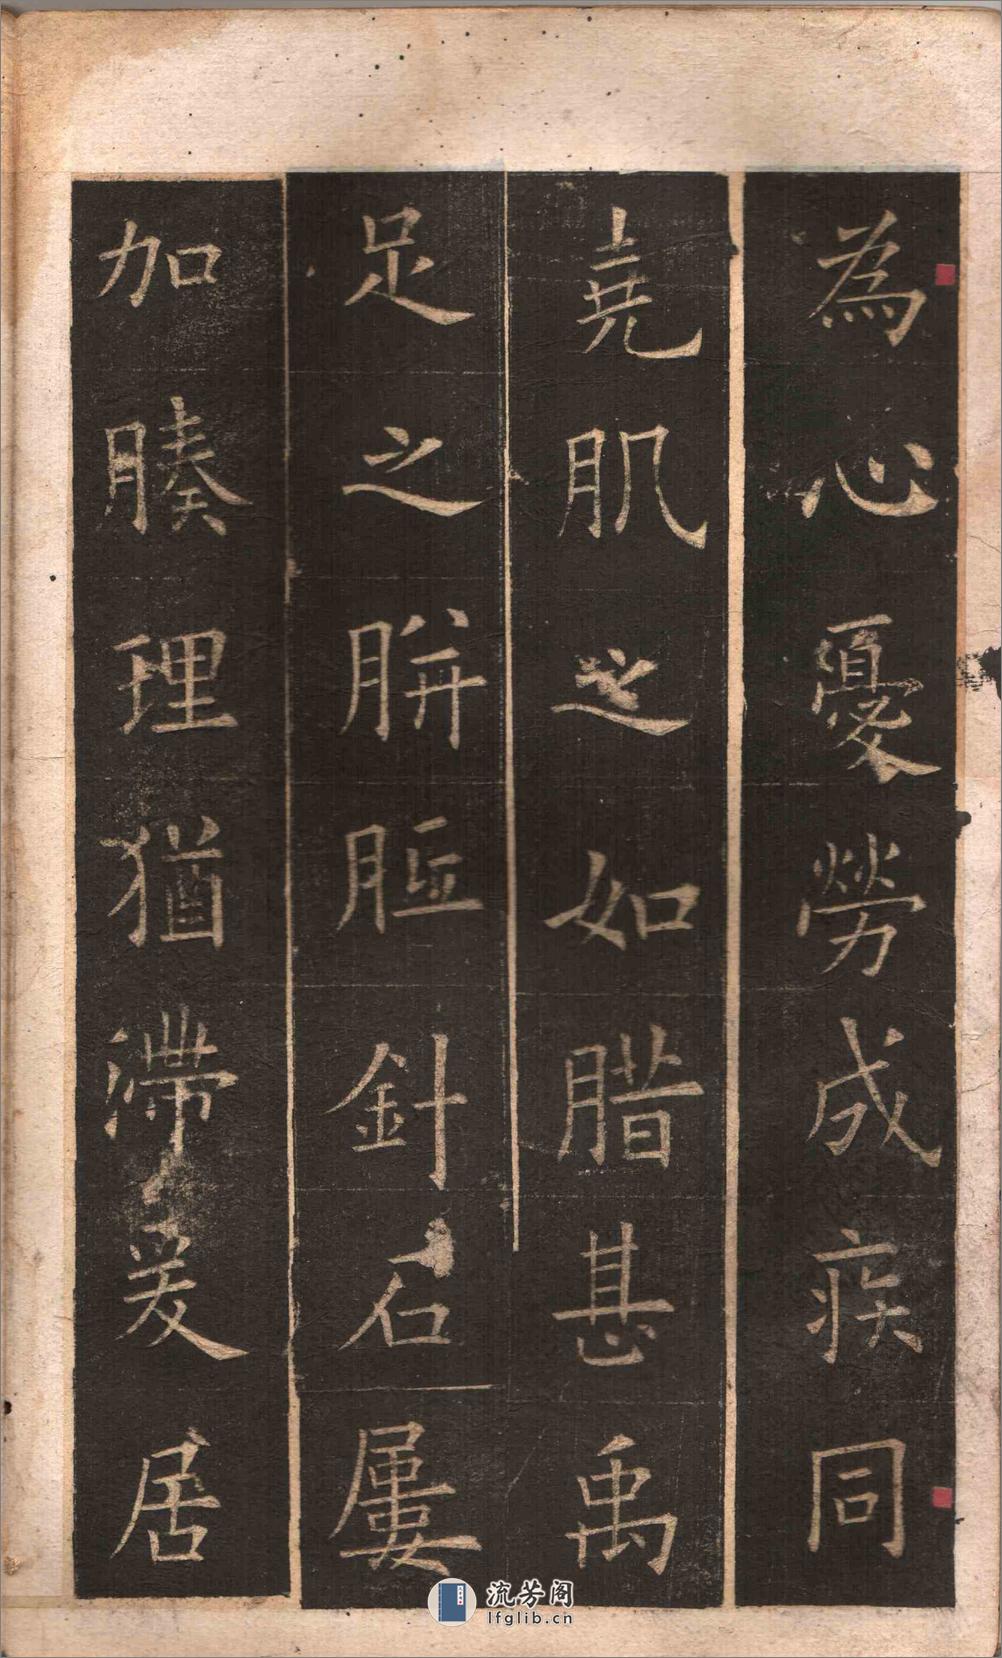 為心憂勞成疾同
堯肌之如腊甚禹
足之胼胝針石屢
加腠理猶滯爰居
流芳阁
lfglib.cn